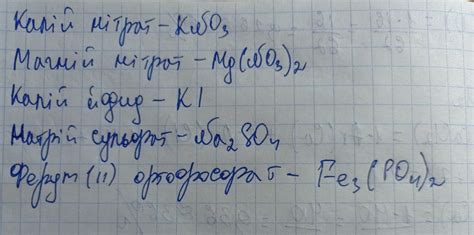 Калій нітрат - KNO₃
Магній нітрат - Mg(NO₃)₂
Калій йодид - KI
Натрій сульфат - Na₂SO₄
Ферум (II) ортофосфат - Fe₃(PO₄)₂